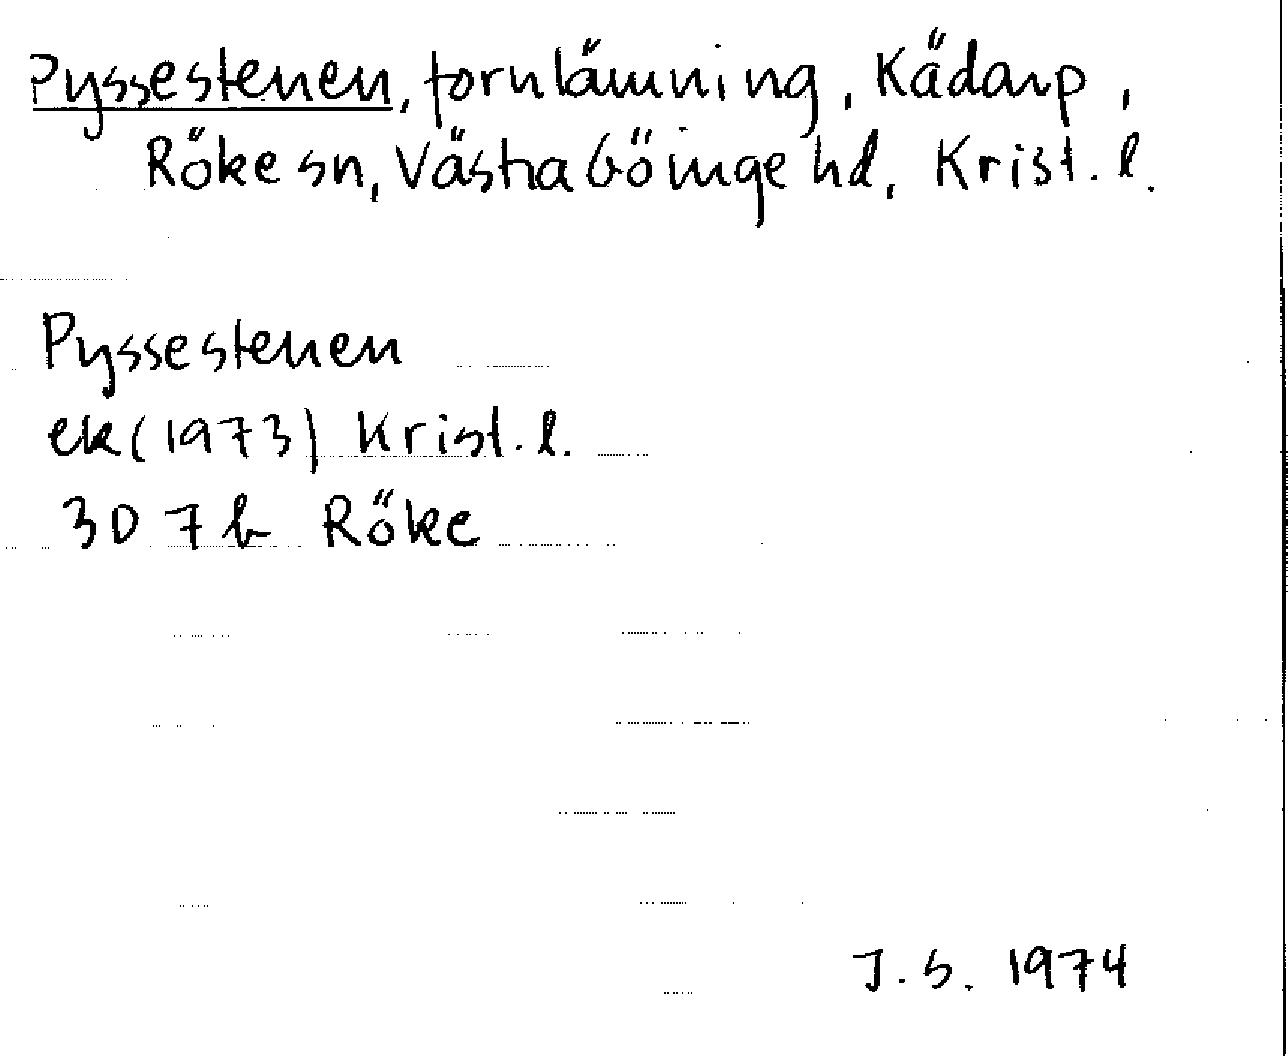 Pyssestenen, fornlämning, Kädarp,
Röke sn, Västra Göinge hd, Krist. l.
Pyssestenen
ek (1973) Krist. l.
3D 7b Röke
J. S. 1974